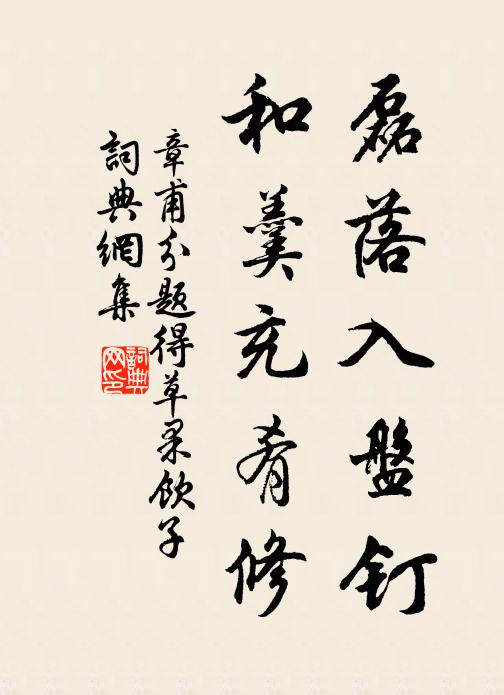 磊落入盤飣
和羹充肴修
章甫分題得草果飲子
詞典網集
詞典網印